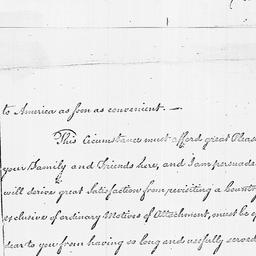 to America as soon as convenient. —
This Circumstance must afford great Pleas
your Family and Friends here, and I am persuade
will derive great Satisfaction from revisiting a Country
exclusive of ordinary Motives of Attachment, must be
dear to you from having so long and usefully served